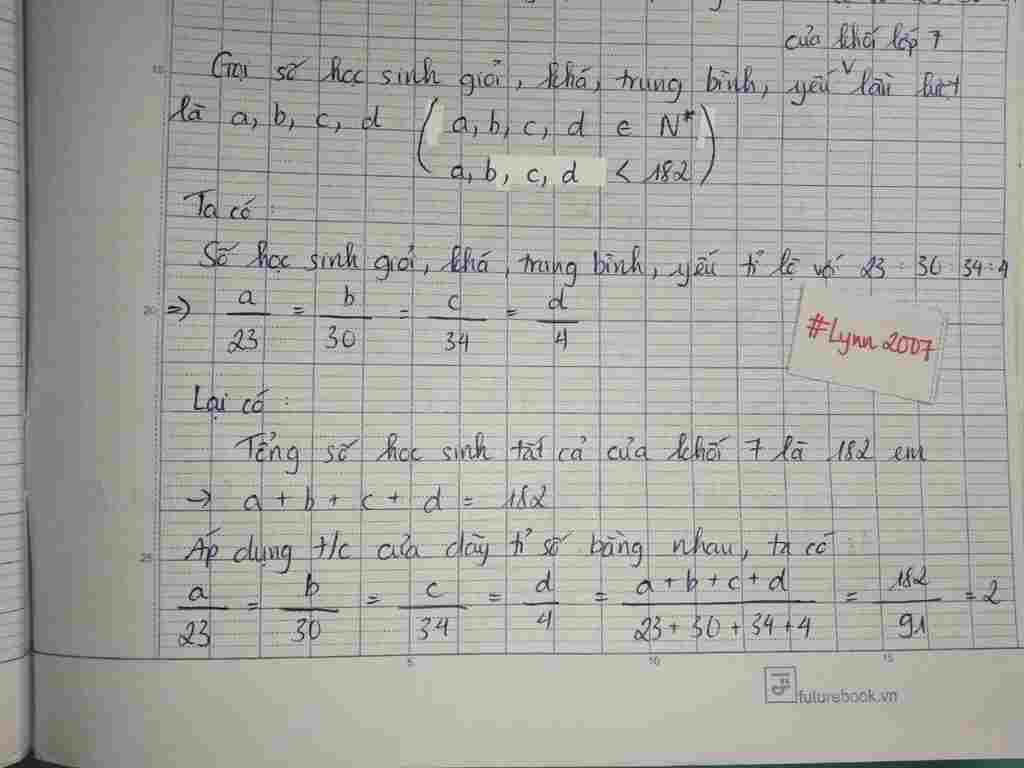 của khối lớp 7
Gọi số học sinh giỏi, khá, trung bình, yếu lần lượt
là a, b, c, d ( a, b, c, d ∈ N*
a, b, c, d < 182 )
Ta có :
Số học sinh giỏi, khá, trung bình, yếu tỉ lệ với 23 : 30 : 34 : 4
=> a/23 = b/30 = c/34 = d/4
#Lynn 2007
Lại có :
Tổng số học sinh tất cả của khối 7 là 182 em
-> a + b + c + d = 182
Áp dụng t/c của dãy tỉ số bằng nhau, ta có :
a/23 = b/30 = c/34 = d/4 = (a + b + c + d)/(23 + 30 + 34 + 4) = 182/91 = 2
futurebook.vn